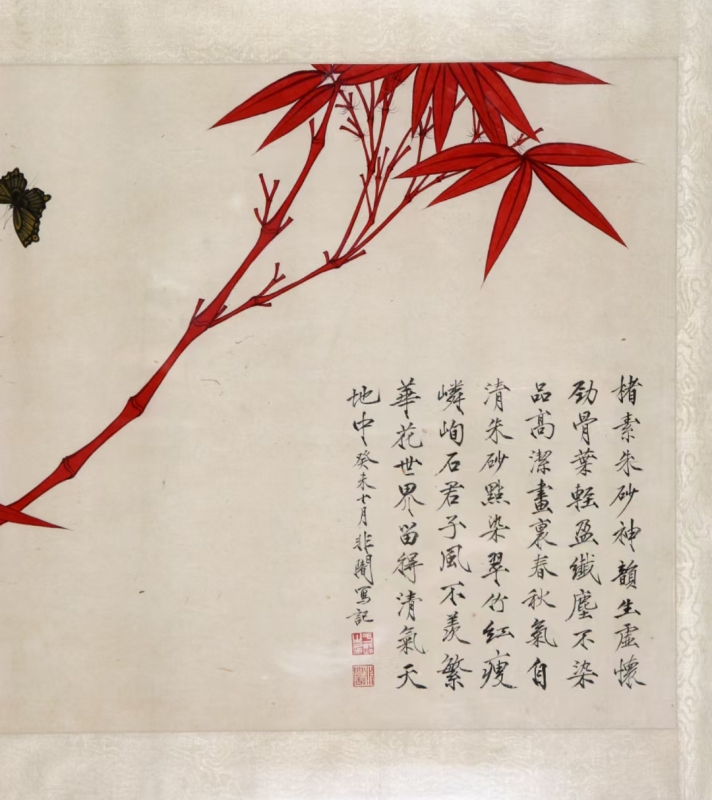 楮素朱砂神韻生虛懷
勁骨葉輕盈纖塵不染
品高潔畫裏春秋氣自
清朱砂點染翠竹紅瘦
嶙峋石君子風不羨繁
華花世界留得清氣天
地中癸未十月非闇寫記